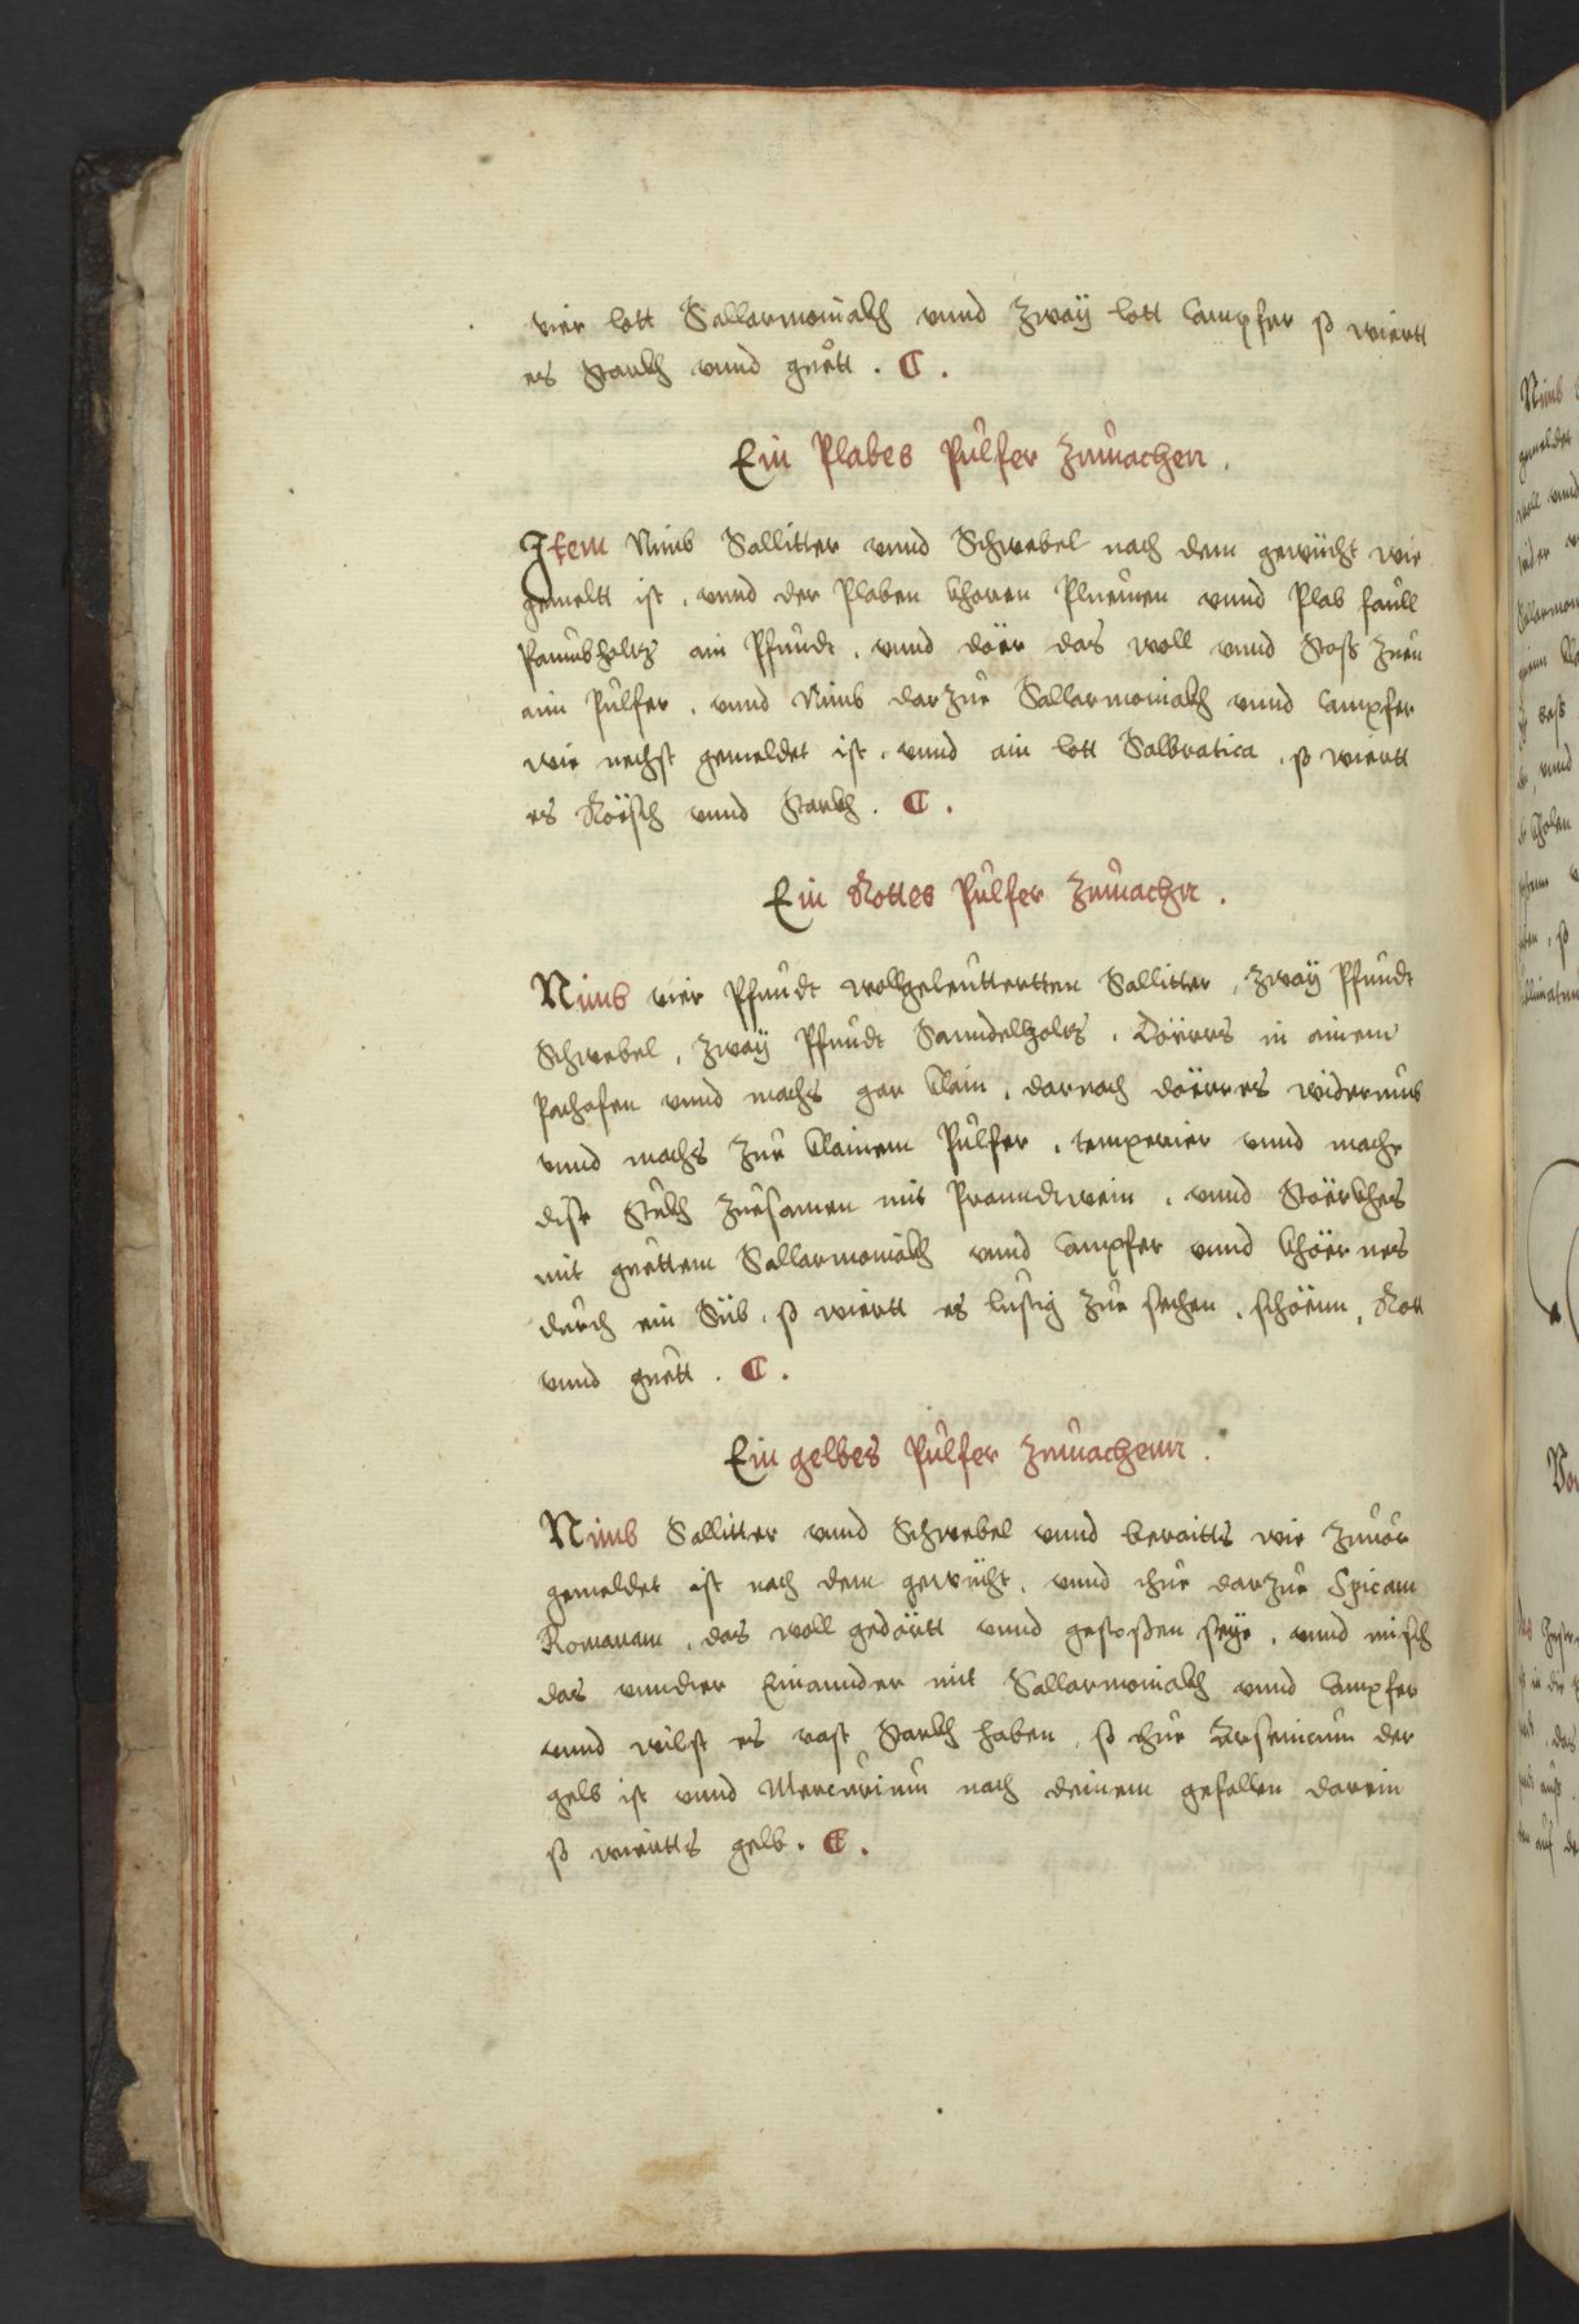 vier lott Sallarmoniakh vnnd Zway lott Campfer so wiertt
es Starkh vnnd guett . C .
Ein Plabes Pulfer Zumachen .
Item Nimb Sallitter vnnd Schwebel nach dem gewücht wie
gemeltt ist , vnnd der Plaben khoren Pluemen vnnd Plab faull
Paumbholtz ain Pfundt , vnnd döer das woll vnnd Stoß Zueu
aim Pulfer , vnnd Nimb darZue Sallarmoniakh vnnd Campfer
wie nechst gemeldet ist , vnnd ain lott Salbratica , so wiertt
es Röisch vnnd Starkh . C .
Ein Rottes Pulfer Zumachn .
Nimb vier Pfundt wollgeleuttertten Sallitter , Zway Pfundt
Schwebel , Zway Pfundt Sanndelholtz , Döerrs in ainem
Pachofen vnnd machs gar klain , darnach döerres widerumb
vnnd machs Zue klainem Pulfer , temperier vnnd mache
dise Stukh Zuesamen mit Pranndtwein , vnnd Störkhes
mit guettem Sallarmoniakh vnnd Campfer vnnd khöernes
durch ein Süb , so wiertt es lustig Zue sechen , schöenn , Rott
vnnd guett . C .
Ein gelbes Pulfer Zumachenn .
Nimb Sallitter vnnd Schwebel vnnd beraitts wie Zuuor
gemeldet ist nach dem gewücht , vnnd thue darZue Spicam
Romanam , das woll gedörtt vnnd gestossen seye , vnnd misch
das vnnder Einannder mit Sallarmoniakh vnnd Campfer
vnnd wilst es vast Starkh haben , so thue Arsenicum der
gelb ist vnnd Mercurium nach deinem gefallen darein
so wiertts gelb . C .